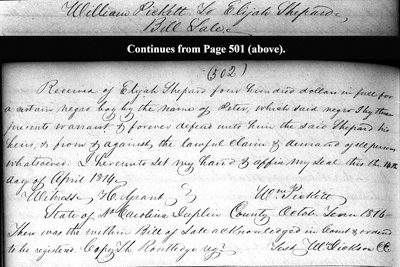 William Pickett To Elijah Shepard
Bill Sale
Continues from Page 501 (above).
(502)
Received of Elijah Shepard four hundred dollars in full for
a certain negro boy by the name of Peter, which said negro I by these
presents warrant & forever defend unto him the said Shepard his
heirs, & from & against the lawful claim & demand of all persons
whatsoever. I hereunto set my hand & affix my seal this the 14th
day of April 1814
Witness H. Grant Wm Pickett
State of No Carolina Duplin County Octob. Term 1816
Then was the within Bill of Sale acknowledged in Court & ordered
to be registered. Copy Th. Routledge regr. Test Wm Dickson CC